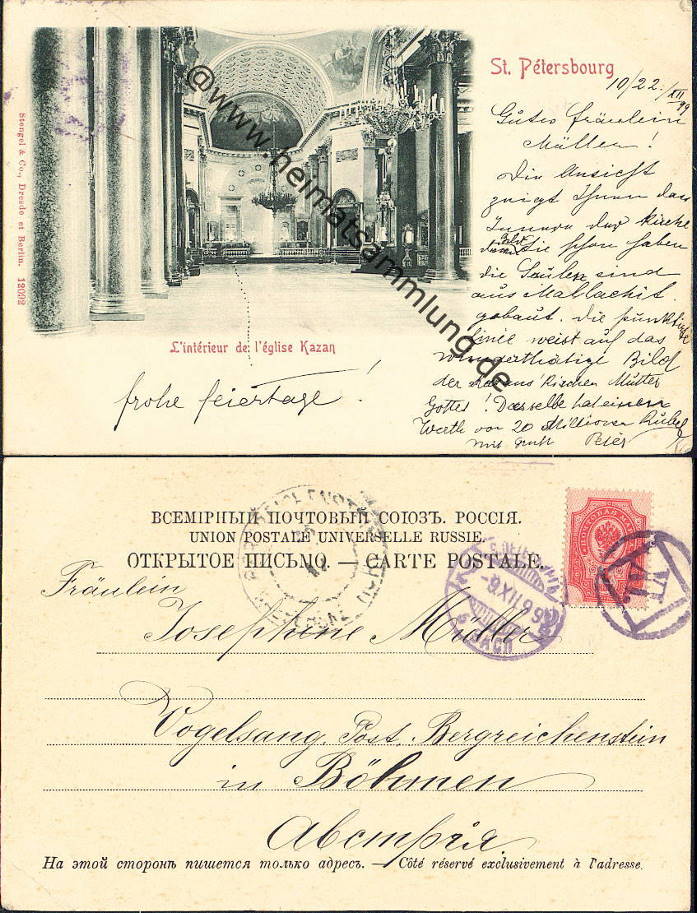 St. Pétersbourg
10/22/XII 99
Gutes Fräulein
Müller!
Die Ansicht
zeigt Ihnen das
Innere der Kirche
die schon haben
die Säulen sind
aus Mallachit
gebaut. Die punktirte
Linie weist auf das
wunderthätige Bild
der Kasans'kischen Mutter
Gottes! Dasselbe hat einen
Werth von 20 Millionen Rubel
mit Gruß Peter
Stengel & Co., Dresde et Berlin. 12092
@www.heimatsammlung.de
L'intérieur de l'église Kazan
frohe feiertage!
ВСЕМІРНЫЙ ПОЧТОВЫЙ СОЮЗЪ. РОССІЯ.
UNION POSTALE UNIVERSELLE RUSSIE.
ОТКРЫТОЕ ПИСЬМО. — CARTE POSTALE.
9 XII 99
VII
Fräulein
Josephine Müller
Vogelsang, Post. Bergreichenstein
in Böhmen
Австрія.
На этой сторонѣ пишется только адресъ. — Côté réservé exclusivement à l'adresse.